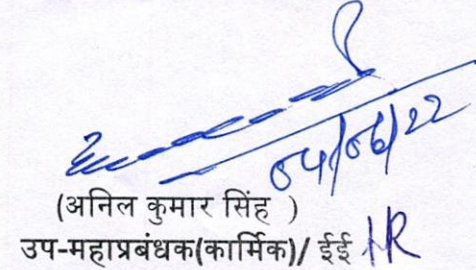 04/06/22
(अनिल कुमार सिंह )
उप-महाप्रबंधक(कार्मिक)/ ईई HR